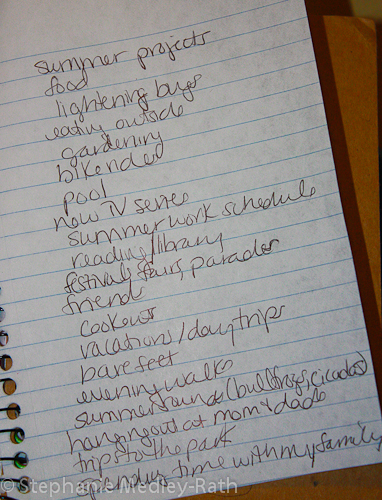 summer projects
food
lightening bugs
eating outside
gardening
bike rides
pool
new TV series
summer work schedule
reading/library
festivals, fairs, parades
friends
cookouts
vacations/day trips
bare feet
evening walks
summer sounds (bullfrogs, cicadas)
hanging out at mom & dads
trips to the park
spending time with my family
© Stephanie Medley-Rath